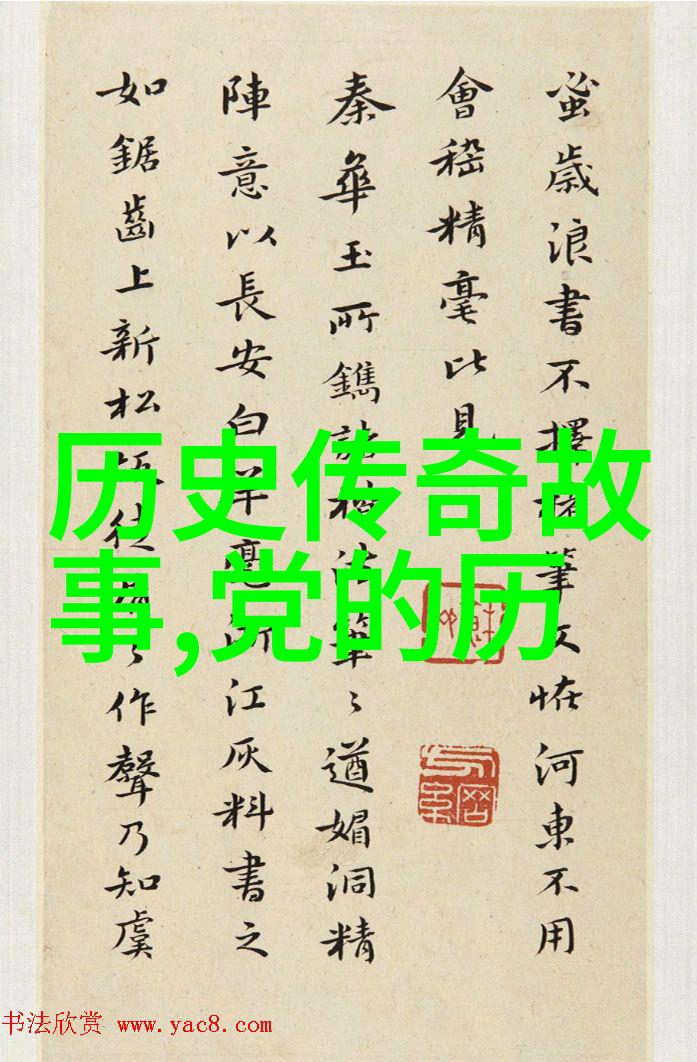 蚤歲浪書不擇筆文恠河東不用
會稽精毫比見
秦華玉所鐫法筆〻遒媚洞精
陣意以長安白羊毫江灰料書之
如鋸齒上新松作聲乃知虞
历史传奇故
事,党的历
书法欣赏 www.yac8.com